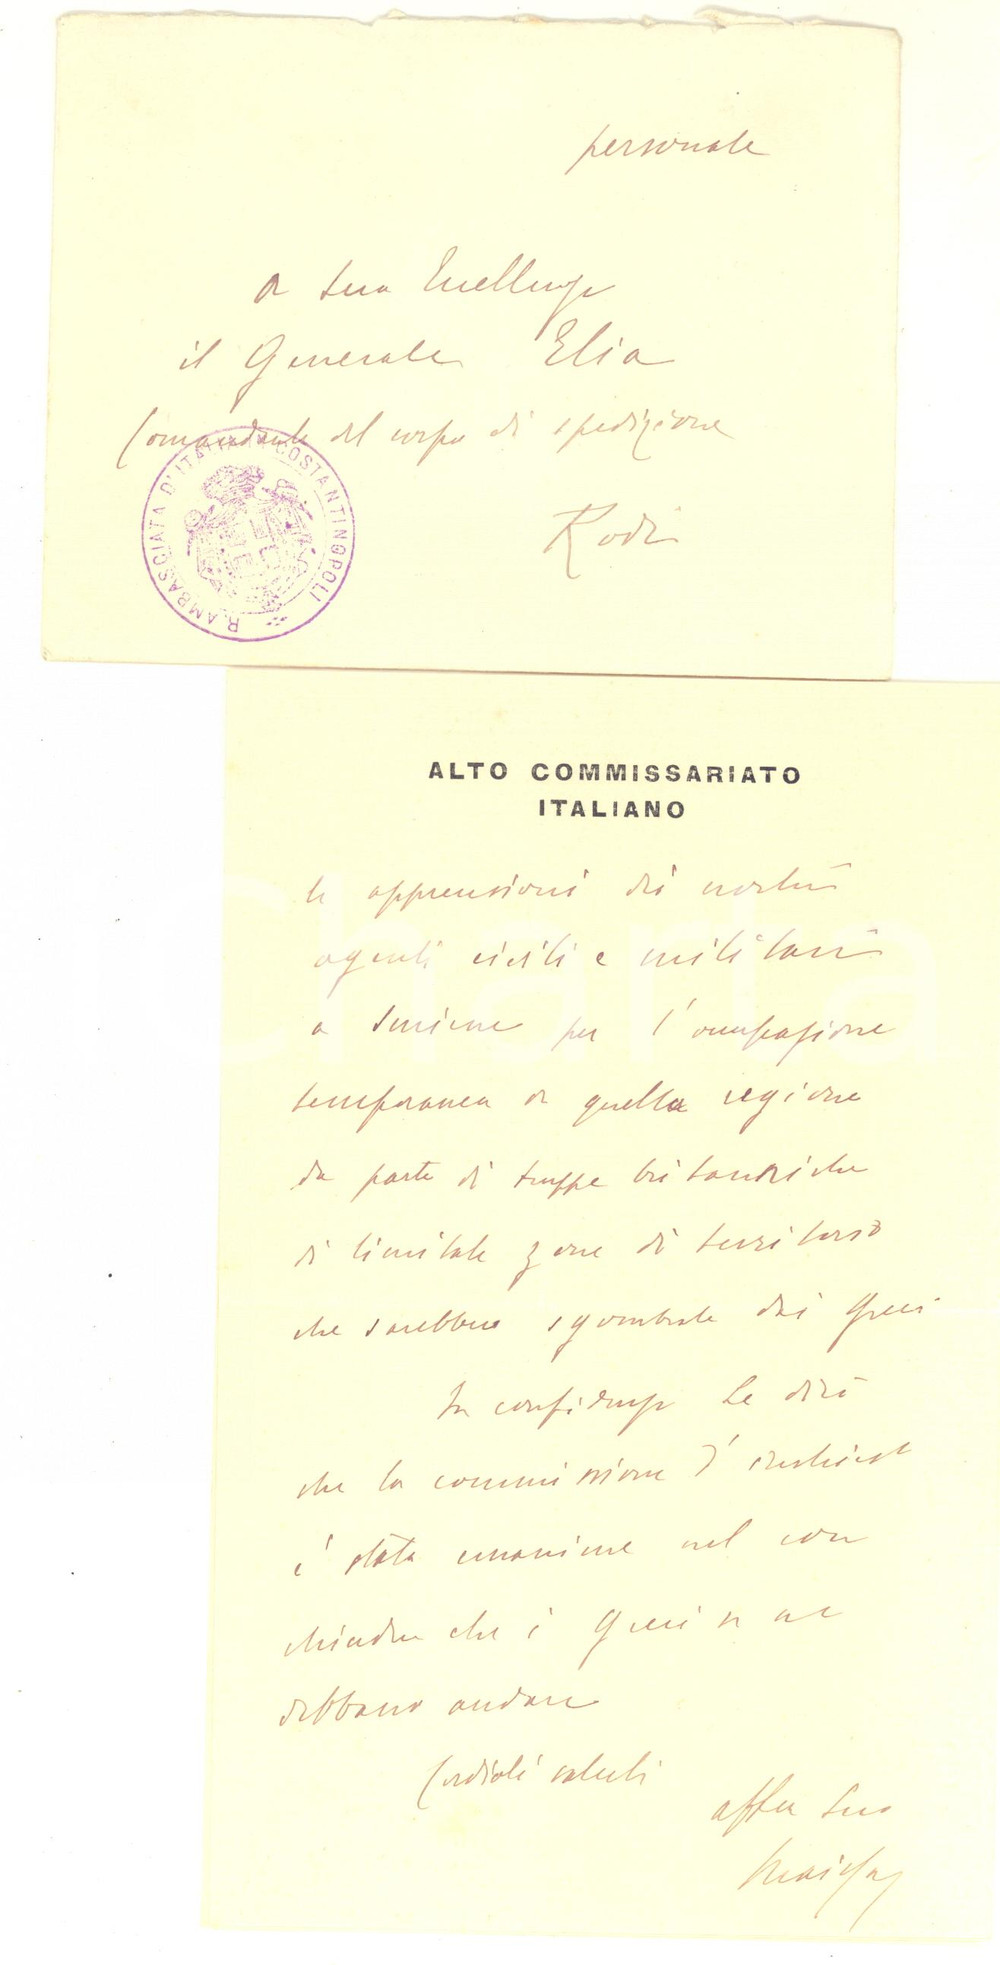 personale
A Sua Eccellenza
il Generale Elia
Comandante del corpo di spedizione
Rodi
R. AMBASCIATA D'ITALIA COSTANTINOPOLI
ALTO COMMISSARIATO
ITALIANO
le apprensioni dei nostri
agenti civili e militari
a Smirne per l'occupazione
temporanea di quella regione
da parte di truppe britanniche
di limitate zone di territorio
che sarebbero sgombrate dai Greci
In confidenza Le dirò
che la commissione d'inchiesta
è stata unanime nel con
chiudere che i Greci se ne
debbano andare
Cordiali saluti
aff.mo Suo
Charta